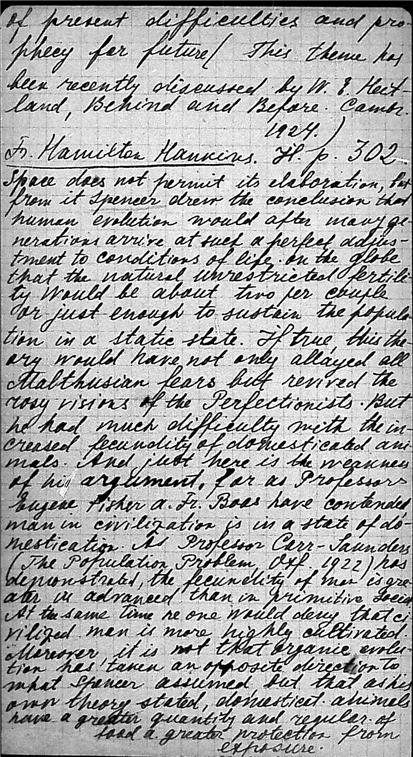 of present difficulties and pro-
phecy for future/ This theme has
been recently discussed by W. E. Heit-
land, Behind and Before. Cambr.
1924.)
Fr. Hamilton Hankins. H. p. 302
Space does not permit its elaboration, but
from it Spencer drew the conclusion that
human evolution would after many ge-
nerations arrive at such a perfect adjus-
tment to conditions of life on the globe
that the natural unrestricted fertili-
ty would be about two per couple
or just enough to sustain the popula-
tion in a static state. If true, this the-
ory would have not only allayed all
Malthusian fears but revived the
rosy visions of the Perfectionists. But
he had much difficulty with the in-
creased fecundity of domesticated ani-
mals. And just here is the weakness
of his argument, for as Professors
Eugene Fisher a. Fr. Boas have contended
man in civilization is in a state of do-
mestication. As Professor Carr-Saunders
(The Population Problem Oxf. 1922) has
demonstrated, the fecundity of man is gre-
ater in advanced than in primitive
At the same time no one would deny that ci-
vilized man is more highly cultivated.
Moreover it is not that organic evolu-
tion has taken an opposite direction to
what Spencer assumed but that as his
own theory stated, domesticat. animals
have a greater quantity and regular. of
food a. greater protection from
exposure.